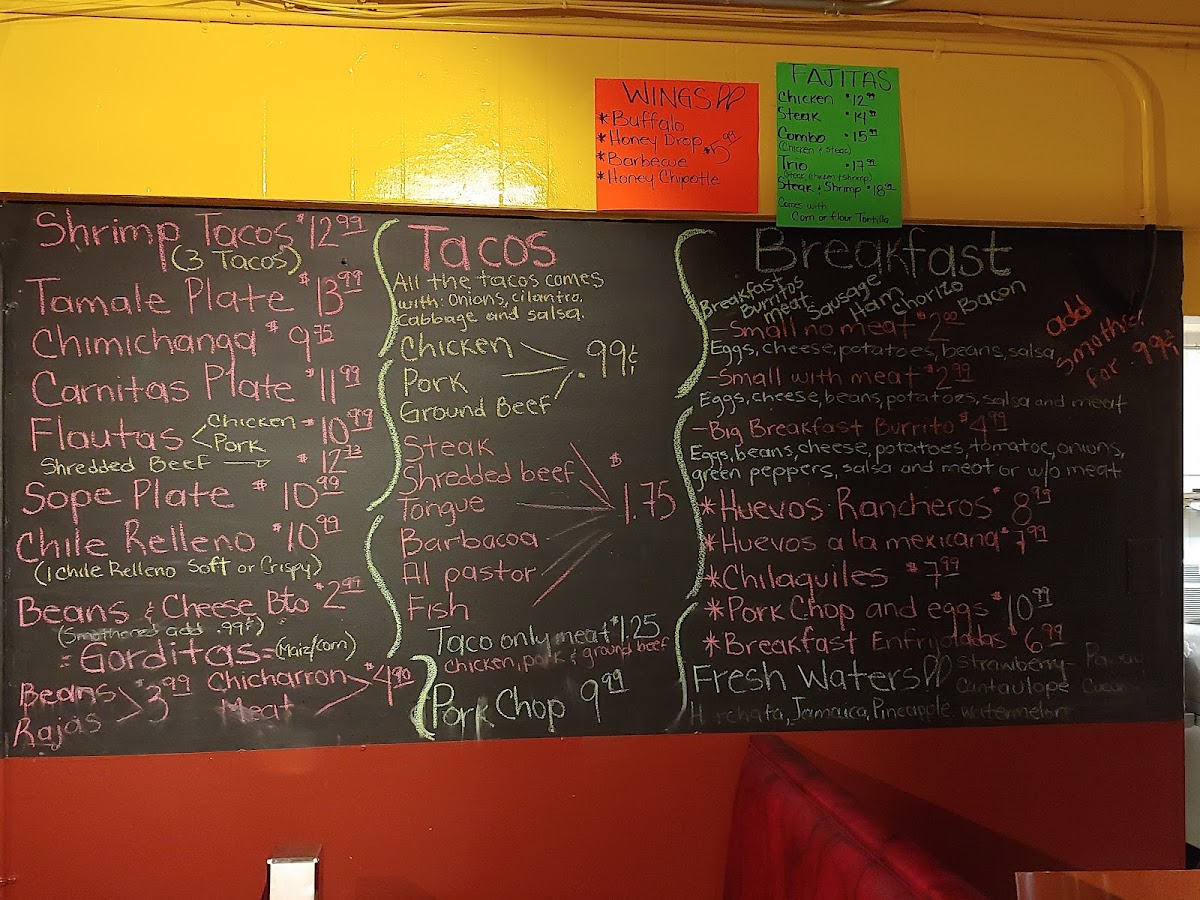 WINGS
*Buffalo
*Honey Drop $5.99
*Barbecue
*Honey Chipotle
FAJITAS
Chicken $12.99
Steak $14.99
Combo $15.99
(Chicken & Steak)
Trio $17.99
(Steak, chicken & shrimp)
Steak & Shrimp $18.99
Comes with
Corn or flour Tortilla
Shrimp Tacos $12.99
(3 Tacos)
Tamale Plate $13.99
Chimichanga $9.75
Carnitas Plate $11.99
Flautas Chicken $10.99
Pork
Shredded Beef $12.73
Sope Plate $10.99
Chile Relleno $10.99
(1 Chile Relleno Soft or Crispy)
Beans & Cheese Bto $2.99
(Smothered add .99¢)
=Gorditas= (Maiz/corn)
Beans $3.99 Chicharron $4.90
Rajas Meat
Tacos
All the tacos comes
with: Onions, cilantro,
Cabbage and salsa.
Chicken .99¢
Pork
Ground Beef
Steak
Shredded beef $1.75
Tongue
Barbacoa
Al pastor
Fish
Taco only meat $1.25
Chicken, pork & ground beef
Pork Chop 9.99
Breakfast
Breakfast Burritos
meat Sausage Ham Chorizo Bacon
-Small no meat $2.00
Eggs, cheese, potatoes, beans, salsa
-Small with meat $2.99
Eggs, cheese, beans, potatoes, salsa and meat
-Big Breakfast Burrito $4.99
Eggs, beans, cheese, potatoes, tomatoe, onions,
green peppers, salsa and meat or w/o meat
add
for .99¢
*Huevos Rancheros $8.99
*Huevos a la mexicana $7.99
*Chilaquiles $7.99
*Pork Chop and eggs $10.99
*Breakfast Enfrijoladas $6.99
Fresh Waters Strawberry-
Cantaulope
Horchata, Jamaica, Pineapple watermelon